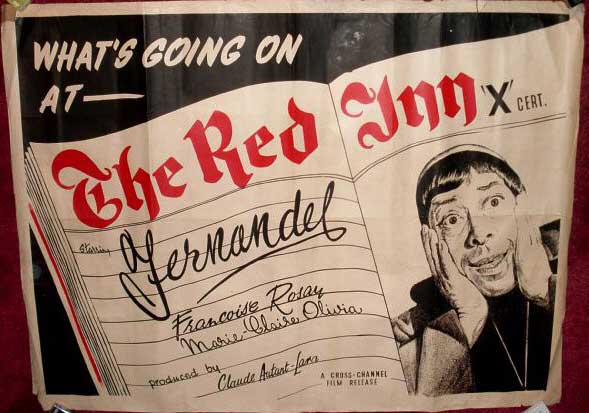 WHAT'S GOING ON
AT—
The Red Inn 'X' CERT.
Starring
Fernandel
Francoise Rosay
Marie-Claire Olivia
produced by Claude Autant-Lara
A CROSS-CHANNEL
FILM RELEASE